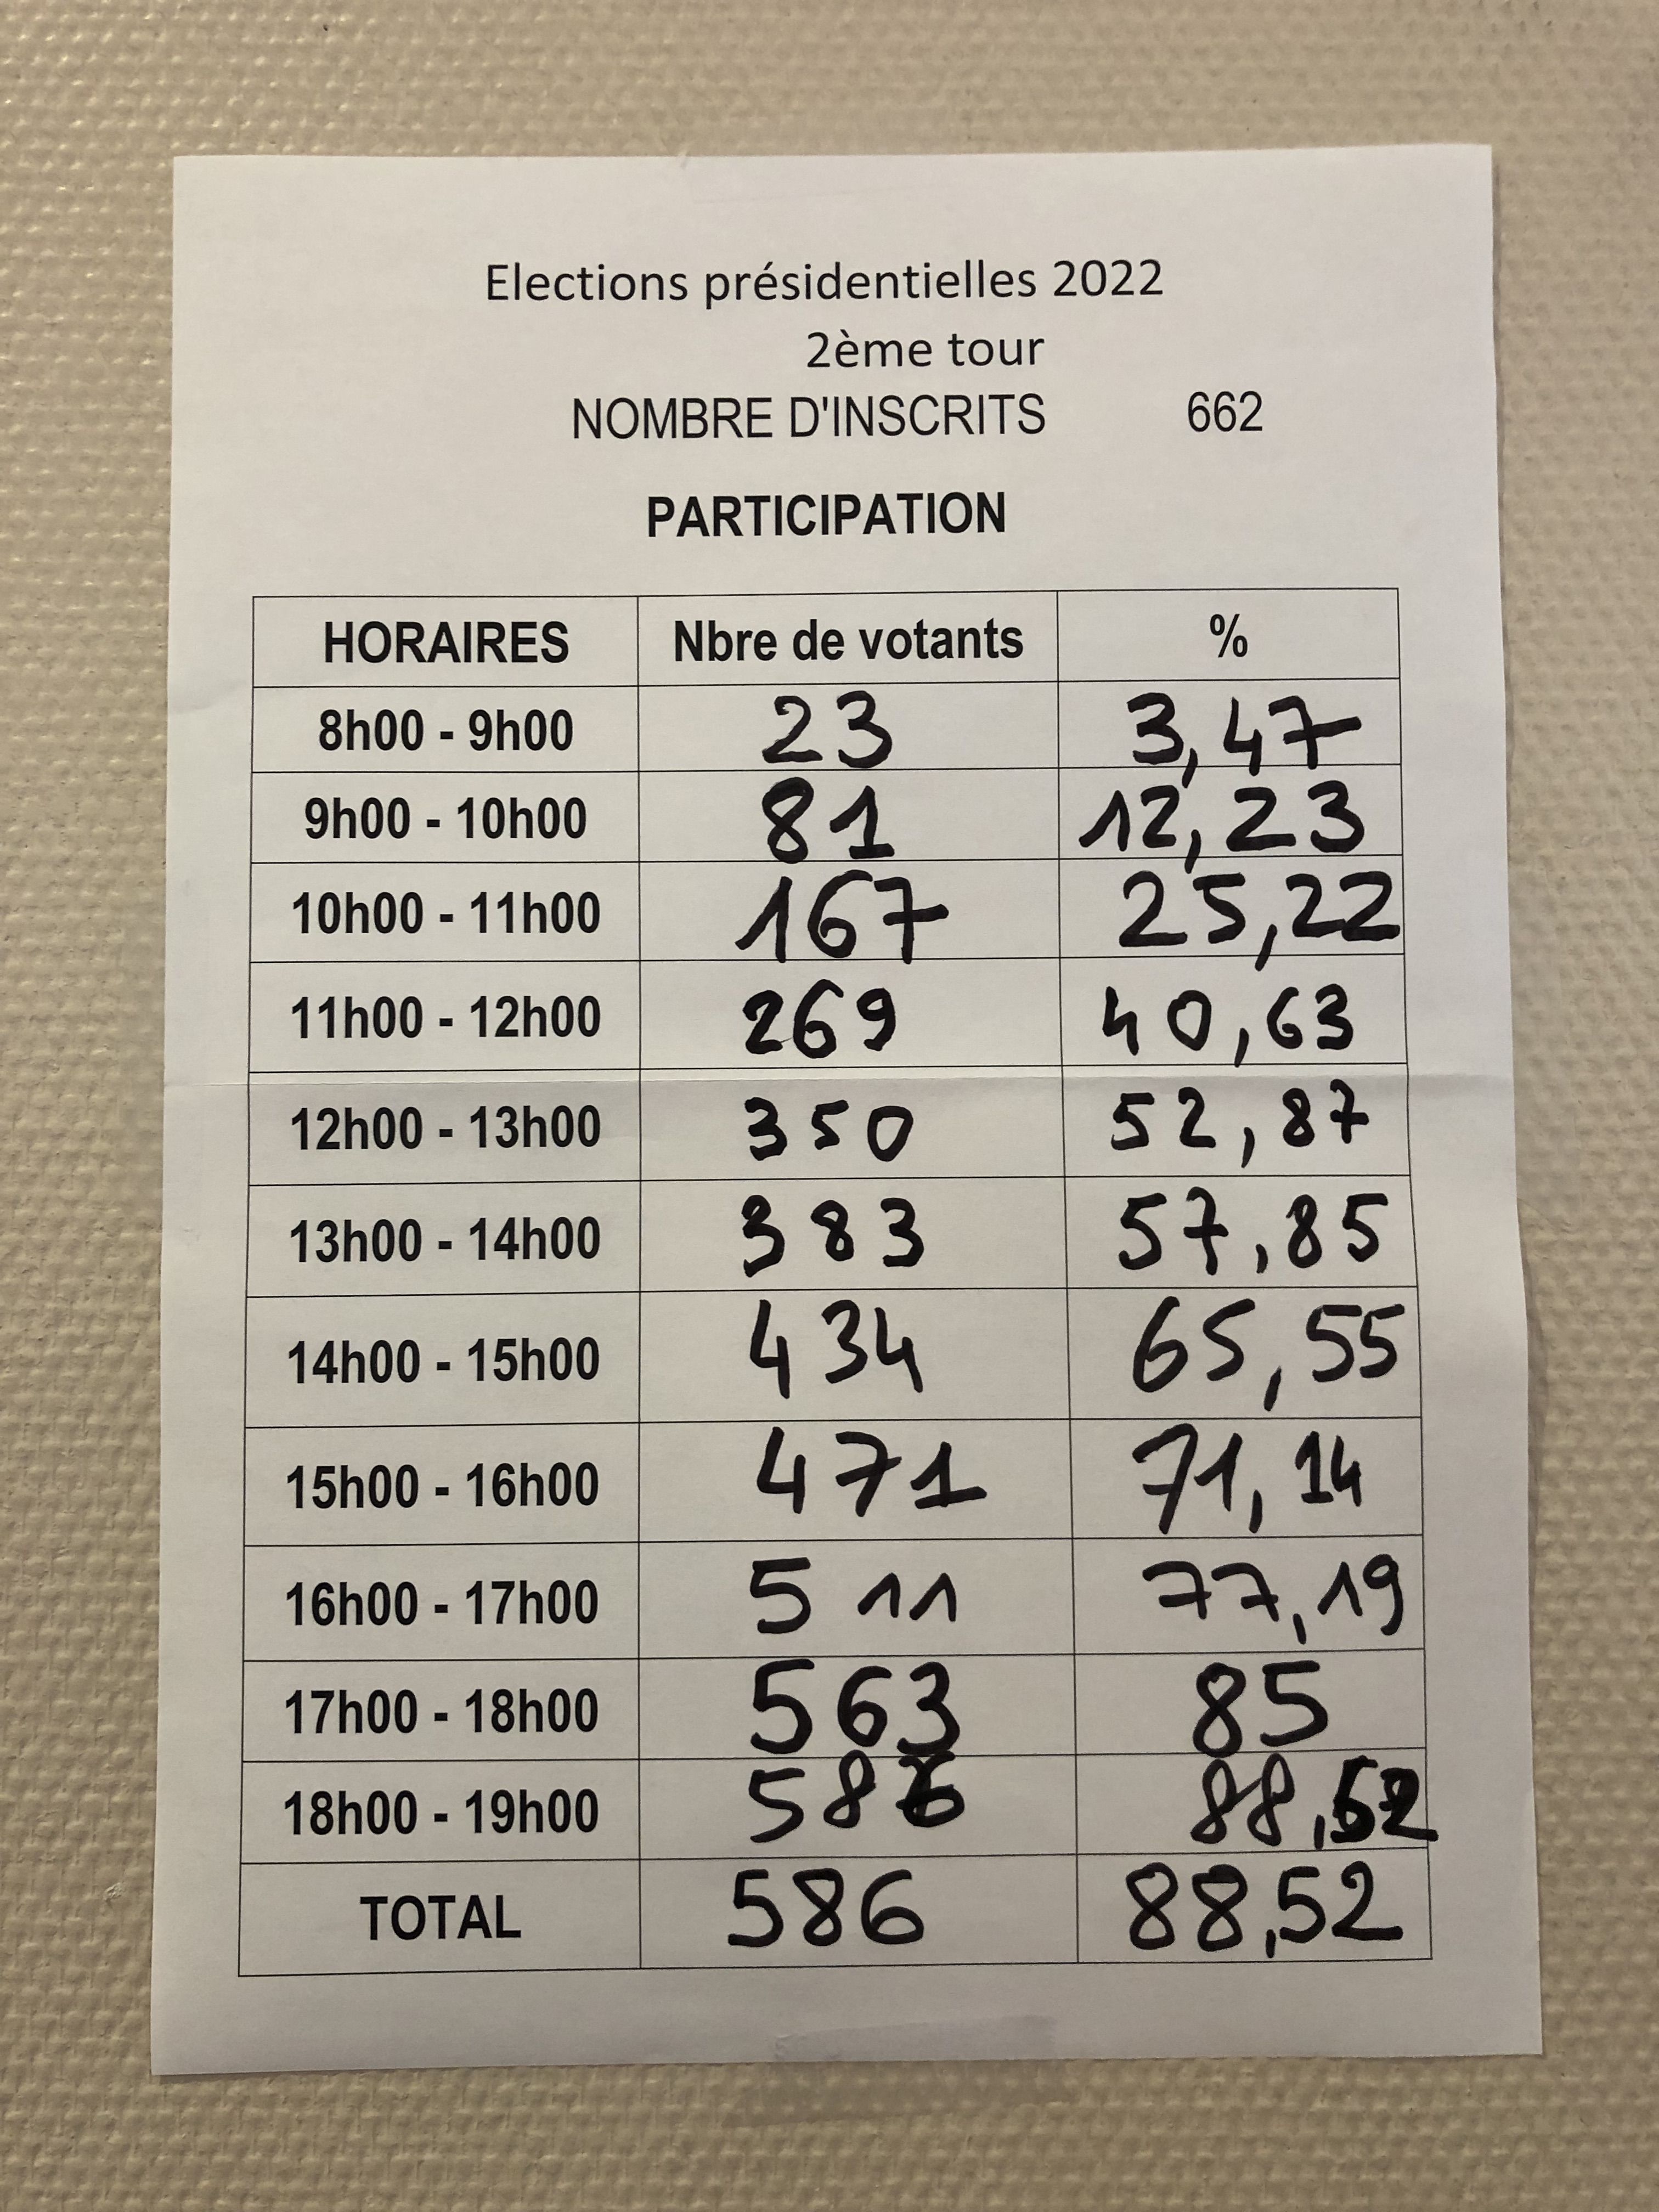 Elections présidentielles 2022
2ème tour
NOMBRE D'INSCRITS 662
PARTICIPATION
HORAIRES Nbre de votants %
8h00 - 9h00 23 3,47
9h00 - 10h00 81 12,23
10h00 - 11h00 167 25,22
11h00 - 12h00 269 40,63
12h00 - 13h00 350 52,87
13h00 - 14h00 383 57,85
14h00 - 15h00 434 65,55
15h00 - 16h00 471 71,14
16h00 - 17h00 511 77,19
17h00 - 18h00 563 85
18h00 - 19h00 586 88,52
TOTAL 586 88,52